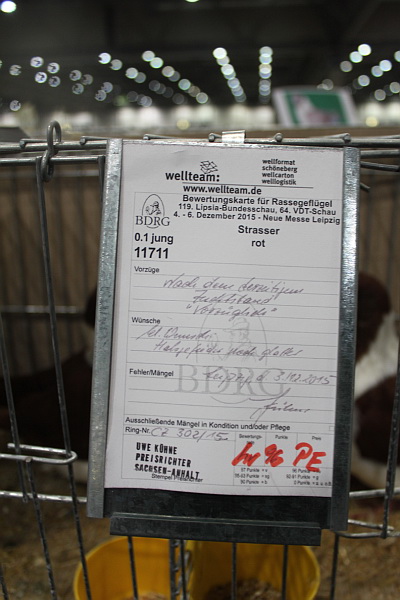 wellteam:
wellformat
schöneberg
wellcarton
welllogistik
www.wellteam.de
Bewertungskarte für Rassegeflügel
119. Lipsia-Bundesschau, 64. VDT-Schau
4. - 6. Dezember 2015 - Neue Messe Leipzig
BDRG
Strasser
rot
0.1 jung
11711
Vorzüge
Nach dem derzeitigen
Zuchtstand
"Vorzüglich"
Wünsche
Halsgefieder noch glatter
Fehler/Mängel
Leipzig, d. 3.12.2015
BDRG
Ausschließende Mängel in Kondition und/oder Pflege
Ring-Nr. CZ 302/15
Bewertungs- Punkte Preis
hv 96 PE
UWE KÜHNE
PREISRICHTER
SACHSEN-ANHALT
Stempel Preisrichter